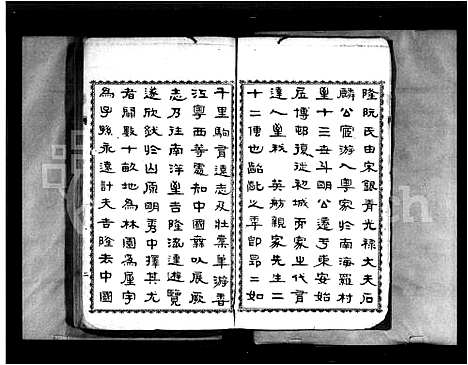 隆阮氏由宋銀青光祿大夫石
麟公宦游入粵家於南海羅村
至十三世斗明公遷于東安始
居博邨復徙初城而家世代有
達人至我 英舫親家先生二
十二傳也齠齔之季即昂二如
千里駒有遠志及壯棄筆游香
江粵西等處知中國難以展厥
志乃往南洋至吉隆流連遊覽
遂欣然於山原明秀中擇其尤
者開數十畝地為林園為屋宇
為子孫永遠計夫吉隆去中國
二